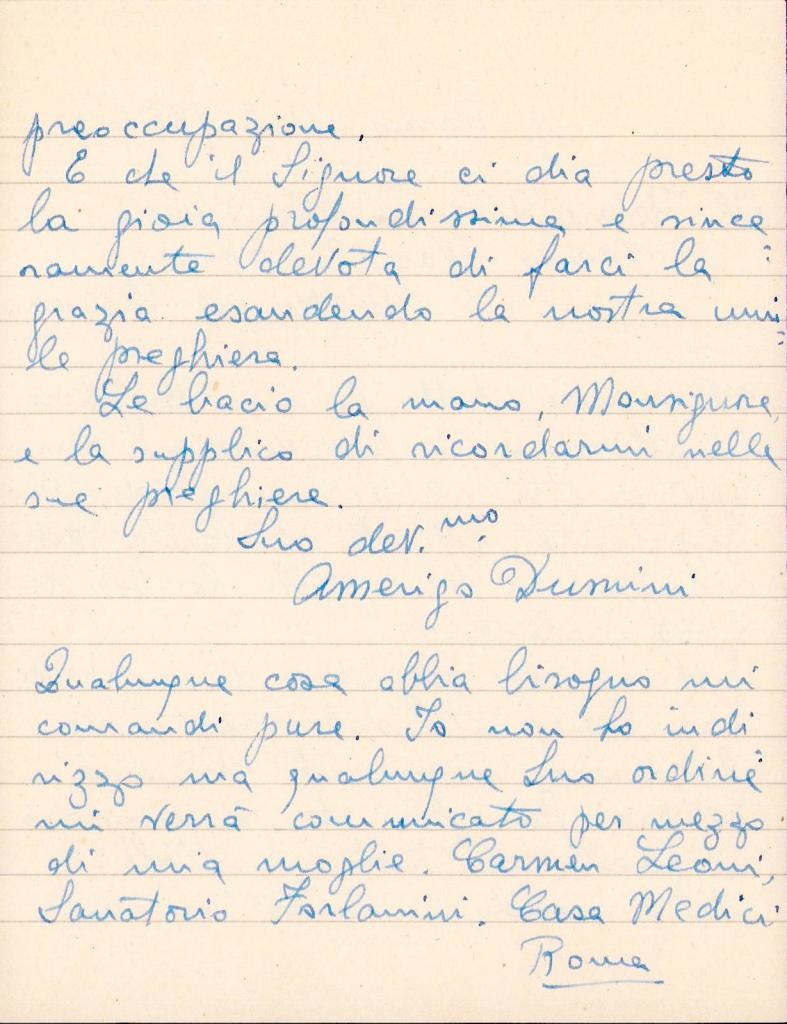 preoccupazione.
E che il Signore ci dia presto
la gioia profondissima e since
ramente devota di farci la
grazia esaudendo la nostra umi
le preghiera.
Le bacio la mano, Monsignore,
e la supplico di ricordarmi nelle
sue preghiere.
Suo dev.mo
Amerigo Dumini
Qualunque cosa abbia bisogno mi
comandi pure. Io non ho indi
rizzo ma qualunque Suo ordine
mi verrà comunicato per mezzo
di mia moglie. Carmen Leoni,
Sanatorio Forlanini. Casa Medici
Roma